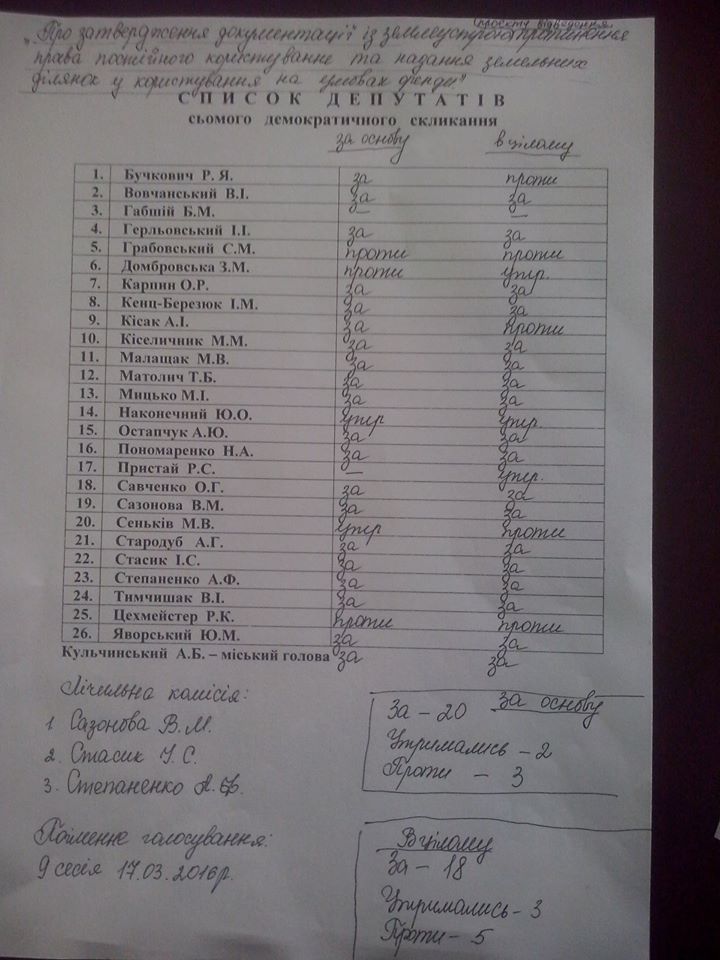 (проекту відведення)
"Про затвердження документації із землеустрою, припинення
права постійного користування та надання земельних
ділянок у користування на умовах оренди."
СПИСОК ДЕПУТАТІВ
сьомого демократичного скликання
за основу в цілому
1. Бучкович Р. Я. за проти
2. Вовчанський В.І. за за
3. Габшій Б.М. — —
4. Герльовський І.І. за за
5. Грабовський С.М. проти проти
6. Домбровська З.М. проти утр.
7. Карпин О.Р. за за
8. Кенц-Березюк І.М. за за
9. Кісак А.І. за проти
10. Кіселичник М.М. за за
11. Малащак М.В. за за
12. Матолич Т.Б. за за
13. Мицько М.І. за за
14. Наконечний Ю.О. утр утр.
15. Остапчук А.Ю. за за
16. Пономаренко Н.А. за за
17. Пристай Р.С. — утр.
18. Савченко О.Г. за за
19. Сазонова В.М. за за
20. Сеньків М.В. утр проти
21. Стародуб А.Г. за за
22. Стасик І.С. за за
23. Степаненко А.Ф. за за
24. Тимчишак В.І. за за
25. Цехмейстер Р.К. проти проти
26. Яворський Ю.М. за за
Кульчинський А.Б. – міський голова за за
Лічильна комісія:
1 Сазонова В.М.
2. Стасик І.С.
3. Степаненко А.Ф.
за основу
За – 20
Утримались – 2
Проти – 3
Поіменне голосування:
9 сесія 17.03.2016р.
В цілому
За – 18
Утримались – 3
Проти – 5